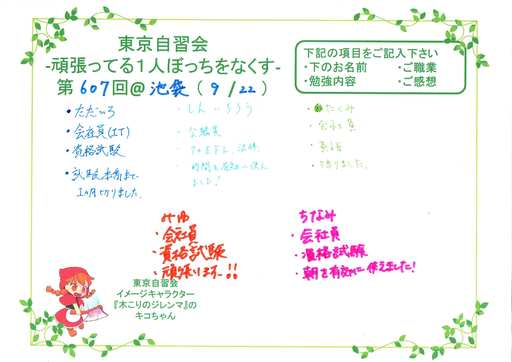 東京自習会
-頑張ってる1人ぼっちをなくす-
第607回@池袋(9/22)
下記の項目をご記入下さい
・下のお名前 ・ご職業
・勉強内容 ・ご感想
・ただいろ
・会社員(IT)
・資格試験
・試験本番まで
1ヵ月切りました。
・しんいちろう
・公務員
・時間を有効に使え
ました!
・たくみ
・会社員
・英語
みゆ
・会社員
・資格試験
・頑張ります〜!!
ちなみ
・会社員
・資格試験
・朝を有効に使えました!
東京自習会
イメージキャラクター
『木こりのジレンマ』の
キコちゃん